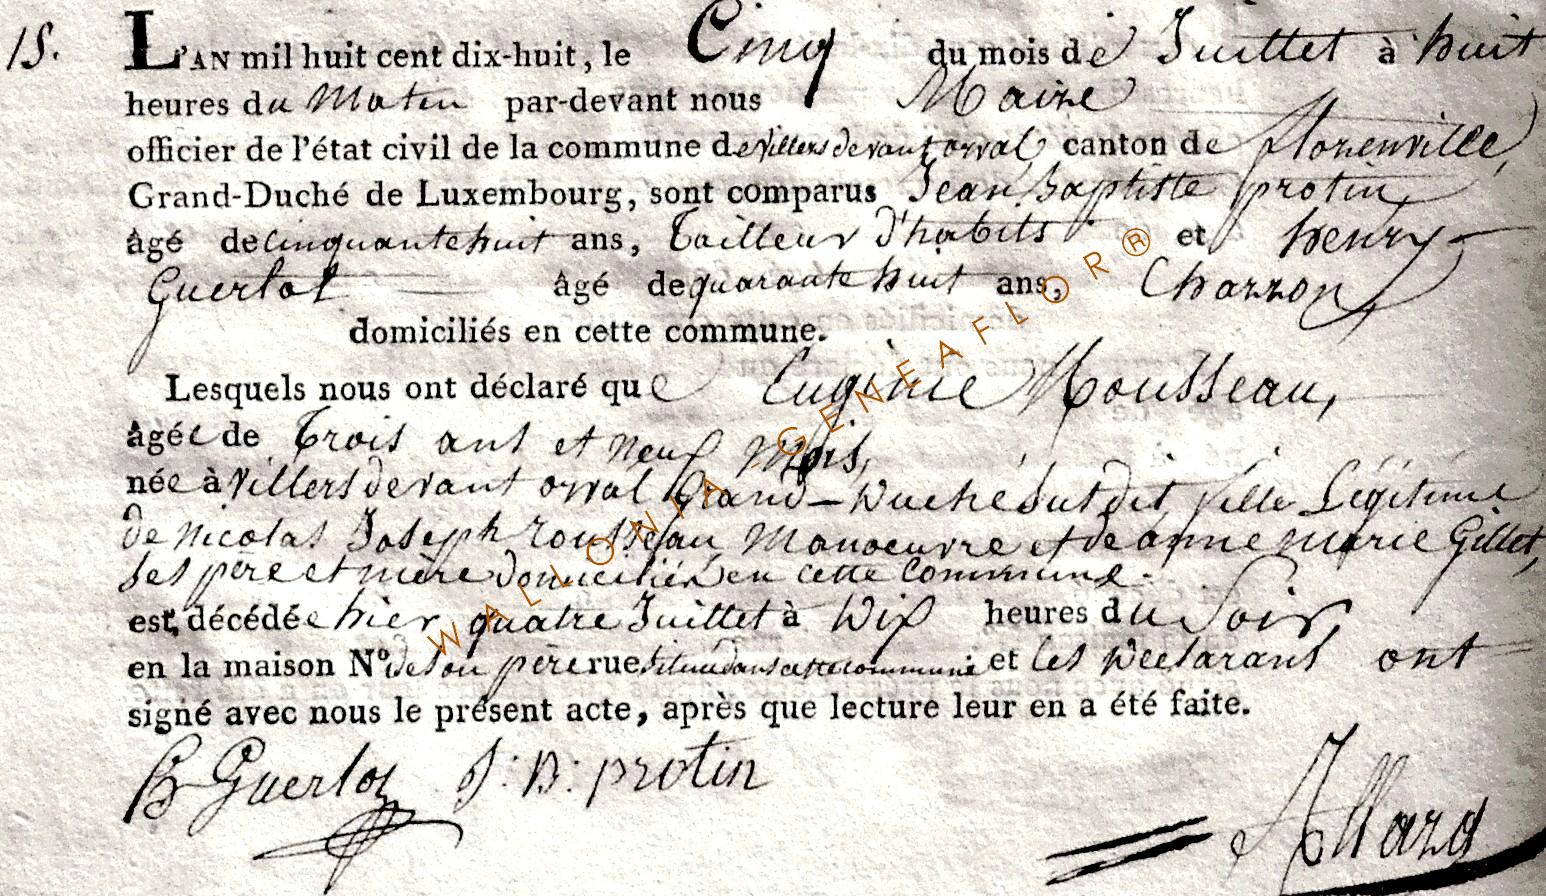 15. L'AN mil huit cent dix-huit, le Cinq du mois de Juillet à huit
heures du Matin par-devant nous Maire
officier de l'état civil de la commune de villers devant orval canton de florenville,
Grand-Duché de Luxembourg, sont comparus Jean Baptiste protin
âgé de cinquante huit ans, Tailleur d'habits et henry
Guerlot âgé de quarante huit ans, Charron
domiciliés en cette commune.
Lesquels nous ont déclaré que Eugènie Rousseau,
âgée de Trois ans et neuf Mois,
née à Villers devant orval Grand-Duché susdit, fille Légitime
de nicolas Joseph rousseau Manoeuvre et de anne marie Gillet,
ses père et mère domiciliés en cette Commune.
est décédée hier quatre Juillet à Dix heures du Soir
en la maison N° de son père rue située dans cette commune et les Déclarans ont
signé avec nous le présent acte, après que lecture leur en a été faite.
h Guerlot J: B: protin Allard
WALLONIA - GENEAFLOR®